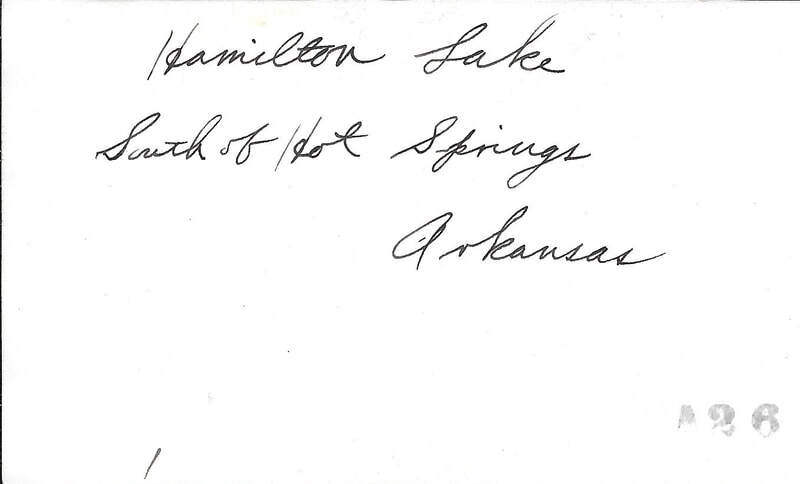 Hamilton Lake
South of Hot Springs
Arkansas
A26